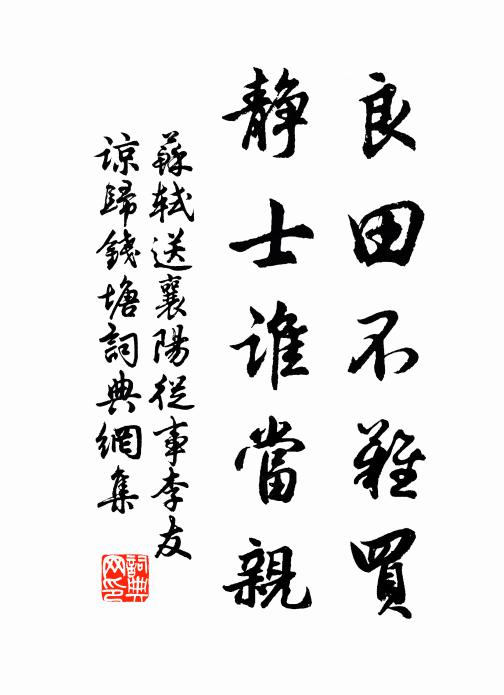 良田不難買
静士誰當親
蘇軾送襄陽從事李友
諒歸錢塘詞典網集
詞典
网印